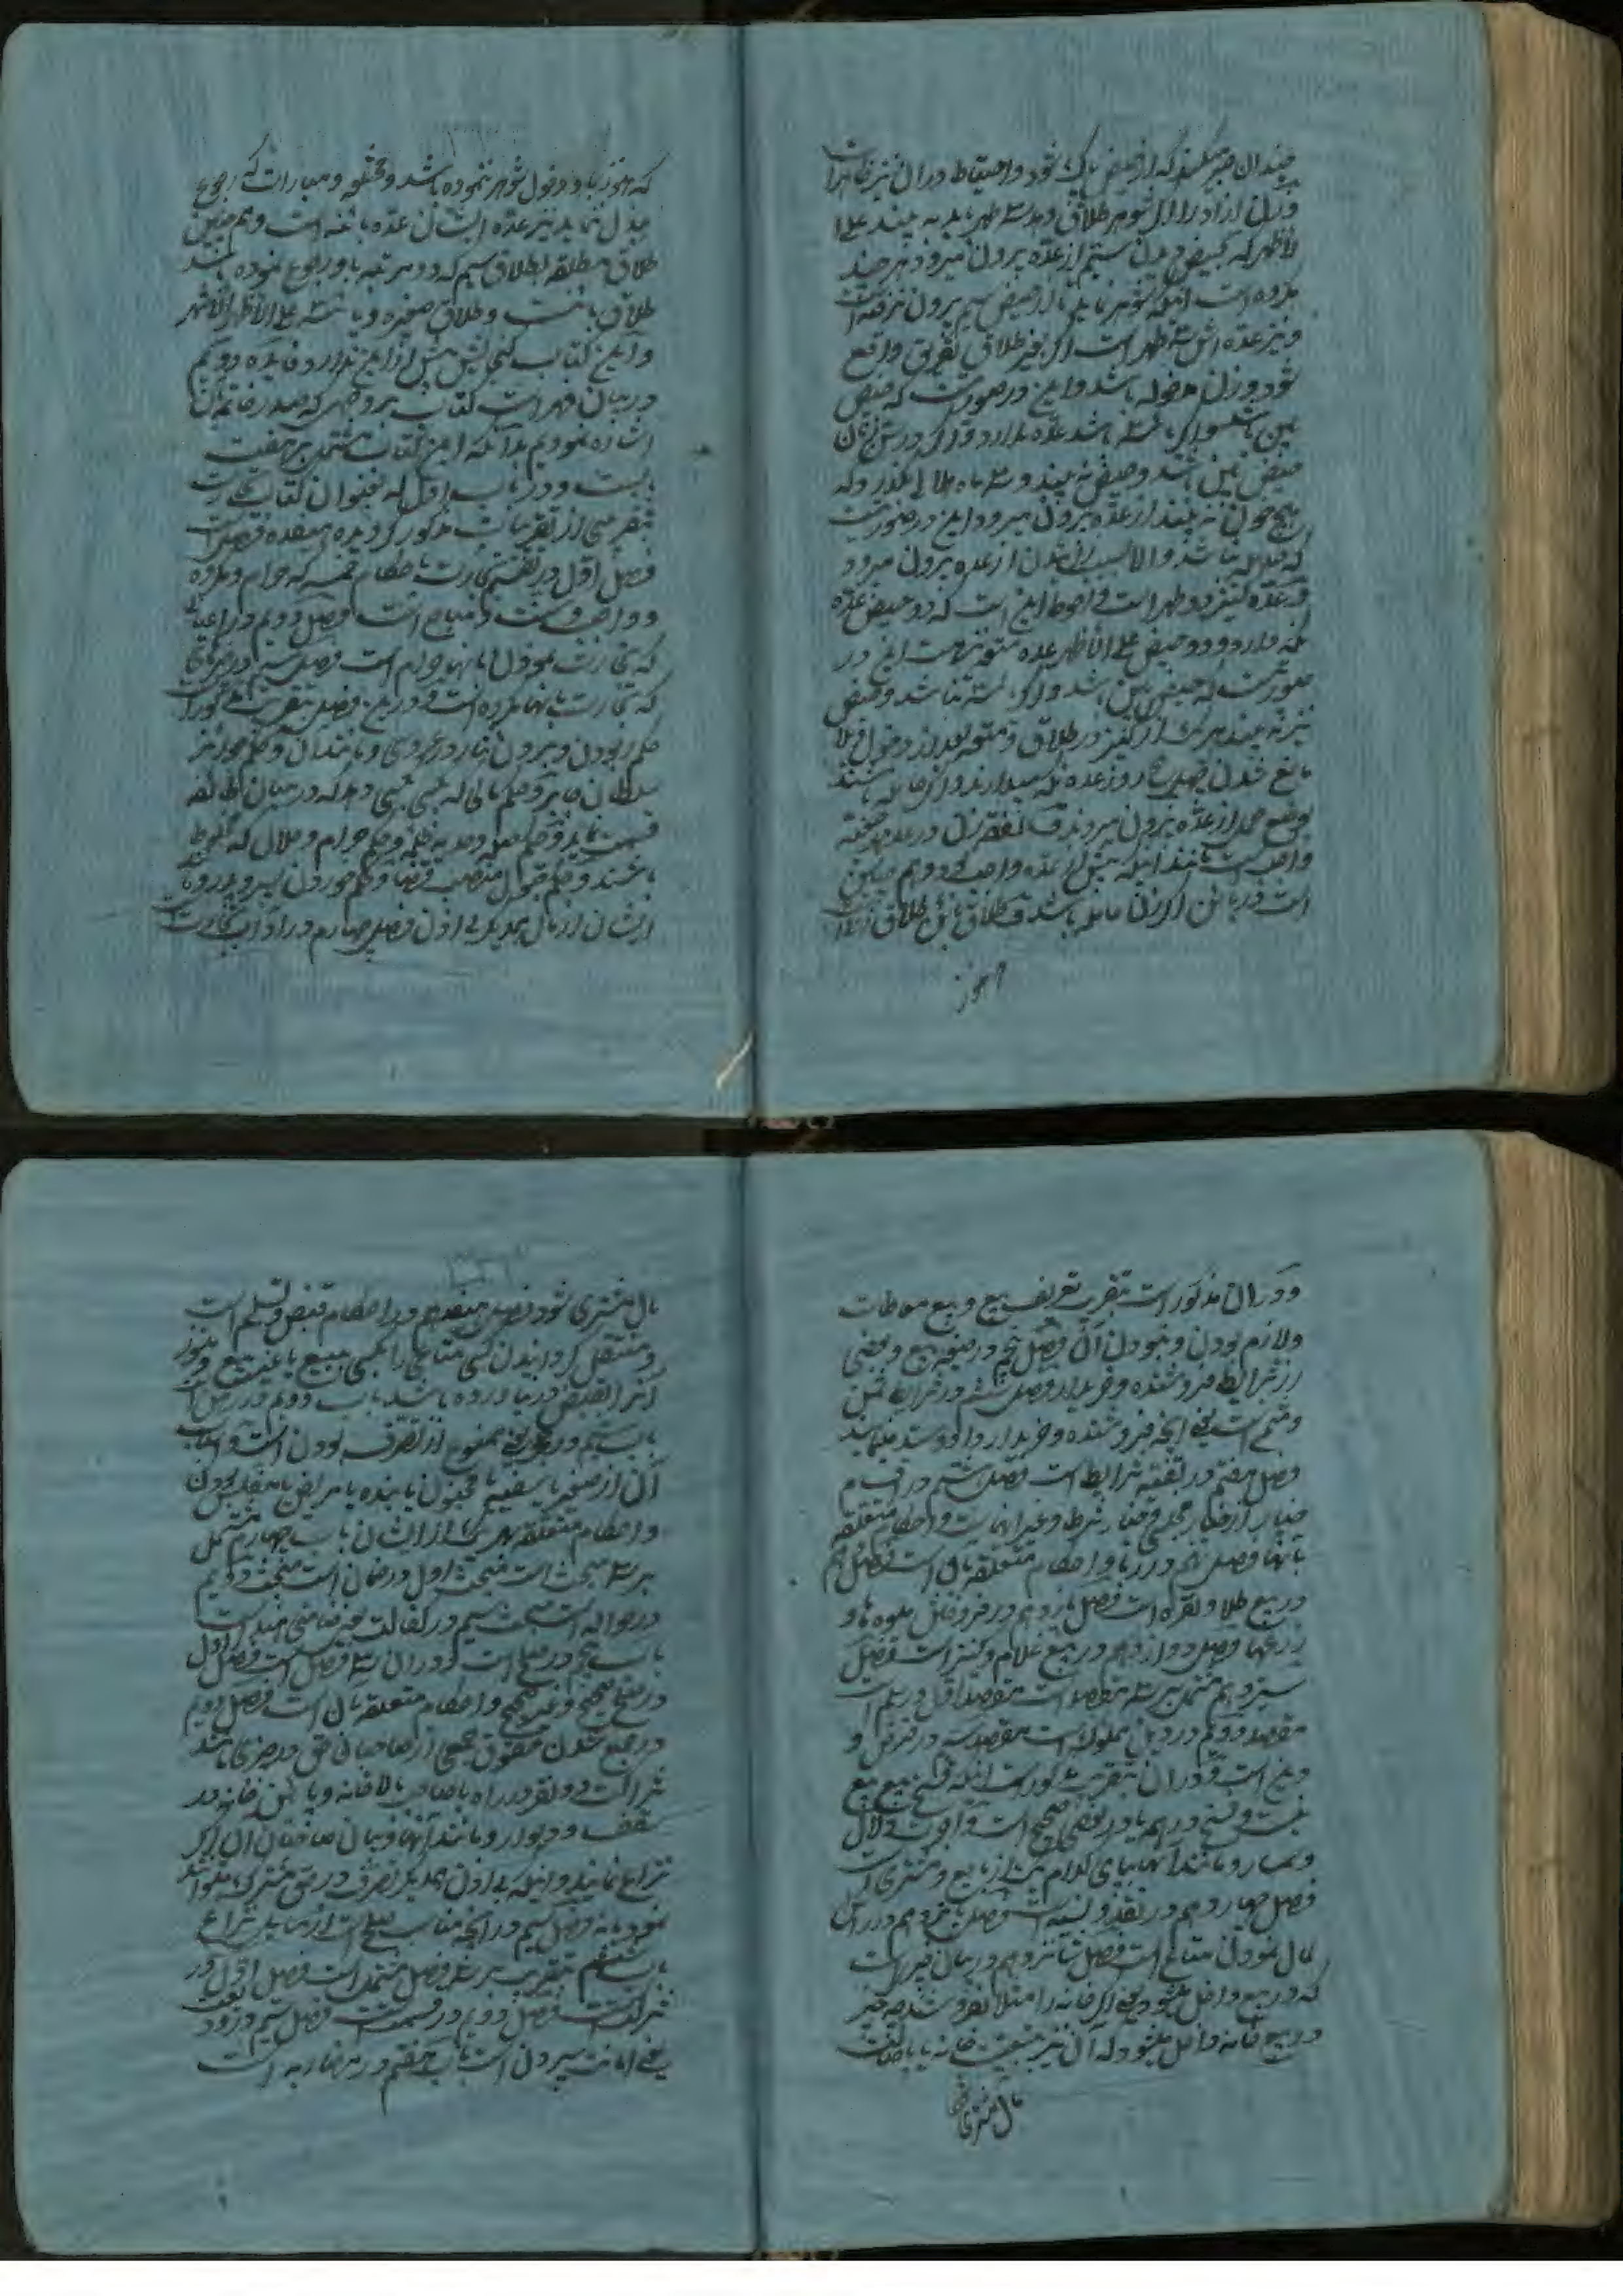 چندان صبر میکند که از حیض پاک شود و احتیاط در آن نیز ظاهر است
و زن آزاد را از شوهر طلاق دهد سه طهر باید به بیند علی
الاظهر که بحیض دیدن سیم از عده بیرون میرود هر چند
مکروه است اینکه شوهر نماید تا از حیض سیم بیرون نرفته است
و نیز عده اش سه طهر است اگر بغیر طلاق تفریق واقع
شود و زن مدخوله باشد و این در صورتیست که حیض
بین باشد و اگر یائسه باشد عده ندارد و اگر در سن زنان
حیض بین باشد و حیض نه بیند و سه ماه هلالی بگذرد که
هیچ خون نه بیند از عده بیرون میرود این در صورتیست
که حامله نباشد و الا بسبب زائیدن از عده بیرون میرود
و عده کنیز دو طهر است و احوط این است که دو حیض عده
نگه دارد و دو حیض علی الاظهر عده متعه است این در
صورتیست که حیض بین باشد و اگر یائسه نباشد و حیض
نیز نه بیند هر یک از کنیز در طلاق و متعه بعد از دخول
بالغ شدن چهل و پنج روز عده نگه میدارند و اگر حامله باشند
بوضع حمل از عده بیرون میروند و نفقه زن در عده رجعیه
واجب است مانند اینکه پیش از عده واجب بود و هم چنین
است در بائن اگر زن حامله باشد و طلاق بائن طلاق زنیست
که هنوز
که هنوز باو دخول شوهر ننموده باشد و مختلعه و مبارات که رجوع
ببذل ننماید نیز عده ایشان عده بائنه است و هم چنین
طلاق مطلقه بطلاق سیم که دو مرتبه باو رجوع نموده باشد
طلاق بائنست و طلاق صغیره و یائسه علی الاظهر الاشهر
و این کتاب گنجایش بیش از این ندارد فایده دویم
در بیان فهرست کتاب بر وجهی که صدر خاتمه بآن
اشاره نمودیم بدانکه این کتاب مشتمل بر هفت
بابست و در باب اول که بعنوان کتاب تجارت
بتقریبی از تقریبات مذکور گردیده هیفده فصل است
فصل اول در تقسیم تجارت باحکام خمسه که حرام و مکروه
و واجب و سنت و مباح است فصل دویم در اعیانی
که تجارت نمودن بآنها حرام است فصل سیم در چیزهای
که تجارت بآنها مکروه است و در این فصل بتقریب مذکور است
حکم ربودن و بردن نثار در عروسی و مانند آن و حکم جوایز
سلطان جایر و حکم مالی که کسی بکسی دهد که در میان طائفه
قسمت نماید و حکم حرام و حلال که مخلوط
باشند و حکم قبول منصب قضا و حکم خوردن پسر و پدر و
ایشان از مال همدیگر بی اذن فصل چهارم در آداب تجارت
و در آن مذکور است بتقریب تعریف بیع و بیع معاطات
و لازم بودن و نبودن آن فصل پنجم در صیغه بیع و بعضی
از شرایط فروشنده و خریدار فصل ششم در شرایط ثمن
و مثمن است یعنی آنچه فروشنده و خریدار داد و ستد مینمایند
فصل هفتم در تتمه شرایط است فصل هشتم در اقسام
خیار از خیار مجلس و خیار شرط و غیر اینهاست و احکام متعلقه
بآنها فصل نهم در ربا و احکام متعلقه بآن است فصل دهم
در بیع طلا و نقره است فصل یازدهم در فروختن میوه ها و
زرعها فصل دوازدهم در بیع غلام و کنیز است فصل
سیزدهم مشتمل بر سه مقصد است مقصد اول در سلم است
مقصد دویم در دین مملوک است مقصد سیم در قرض و
دین است و در آن بتقریب مذکور است اینکه فسخ بیع بیع
نیست و فسخ در همه یا در بعضی صحیح است و اجرت دلال
و سمسار و مانند آنها بپای کدام یک از بایع و مشتری است
فصل چهاردهم در نقد و نسیه است فصل پانزدهم در رأس
مال نمودن متاع است فصل شانزدهم در بیان چیزیست
که در بیع داخل میشود یعنی اگر خانه را مثلا بفروشند چه چیز
در بیع خانه داخل میشود که آن نیز به تبعیت خانه یا باصالت
مال مشتری شود
مال مشتری شود فصل هیفدهم در احکام قبض و تسلیم است
و منتقل گردانیدن کسی متاعی را بکسی ببیع یا غیر بیع و هنوز
آنرا بقبض در نیاورده باشد باب دویم در رهن است
باب سیم در حجر یعنی ممنوع از تصرف بودن است و اسباب
آن از صغیر یا سفیه یا مجنون یا بنده یا مریض یا مفلس بودن
و احکام متعلقه بهر یک از ایشان باب چهارم مشتمل
بر سه مبحث است مبحث اول در ضمان است مبحث دویم
در حواله است مبحث سیم در کفالت یعنی ضامنی است
باب پنجم در صلح است و در آن سه فصل است فصل اول
در صلح صحیح و غیر صحیح و احکام متعلقه بآن است فصل دویم
در جمع شدن حقوق جمعی از صاحبان حق در چیزی مانند
شراکت دو نفر در راه یا صاحب بالاخانه و پائین خانه در
سقف و دیوار و مانند آنها و بیان صاحبان آن اگر
نزاع نمایند و اینکه بی اذن همدیگر تصرف در حق مشترک میتوانند
نمود یا نه فصل سیم در آنچه مناسب صلح است از مسایل نزاع
باب ششم بتقریب بر سه فصل مشتمل است فصل اول در
شراکت است فصل دویم در قسمت است فصل سیم در ودیعت
یعنی امانت سپردن است باب هفتم در مضاربه است